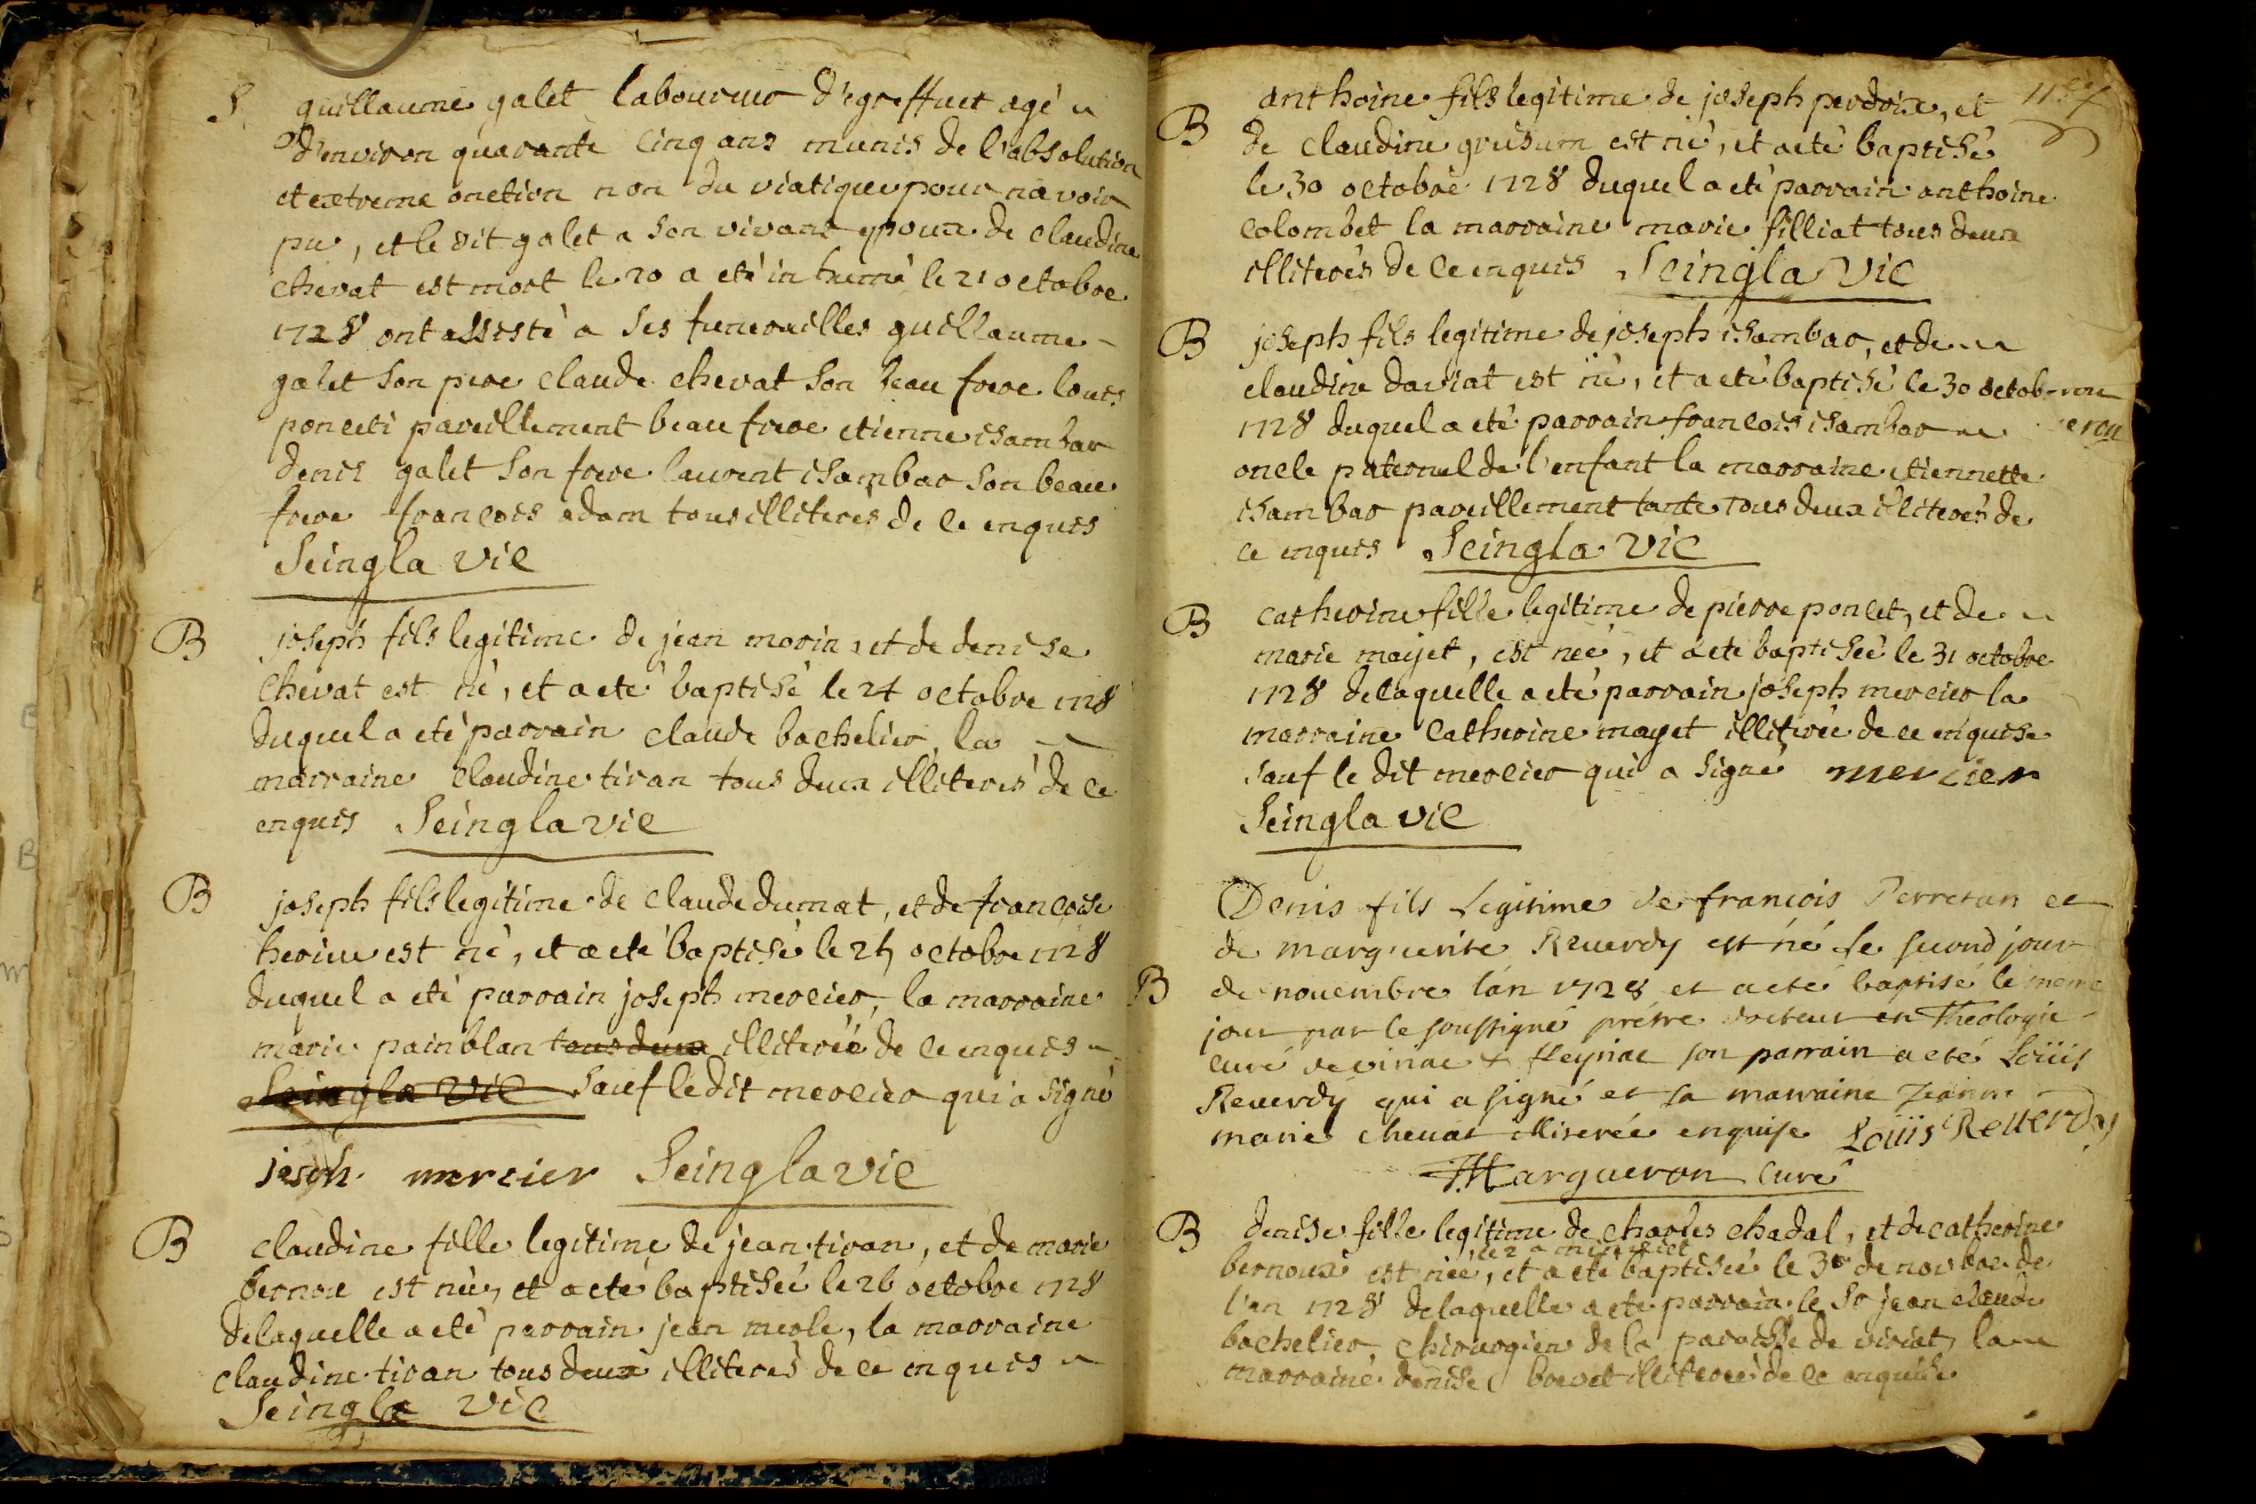 S guillaume galet laboureur d'egreffuet agé
d'environ quarante cinq ans munis de l'absolution
et extreme onction non du viatique pour navoir
pu, et le dit galet a son vivant epoux de claudine
chevat est mort le 20 a eté inhumé le 21 octobre
1728 ont assisté a ses funerailles guillaume
galet son pere claude chevat son beau frere louis
ponceti pareillement beau frere etienne isambar
denis galet son frere laurent isambar son beau
frere francois adam tous illiterés de ce enquis
Seingla vic
B joseph fils legitime de jean morin, et de denise
chevat est né, et a eté baptisé le 24 octobre 1728
duquel a eté parrain claude bachelier la
marraine claudine tiran tous deux illiterés de ce
enquis Seingla vic
B joseph fils legitime de claude dumat, et de francoise
est né, et a eté baptisé le 25 octobre 1728
duquel a eté parrain joseph mercier, la marraine
marie painblan tous deux illiterée de ce enquis
Seingla vic sauf ledit mercier qui a signé
mercier Seingla vic
B claudine fille legitime de jean tiran, et de marie
bernou est née, et a eté baptisée le 26 octobre 1728
delaquelle a eté parrain jean merle, la marraine
claudine tiran tous deux illiterés de ce enquis
Seingla vic
anthoine fils legitime de joseph perdrix, et
B de claudine est né, et a eté baptisé
le 30 octobre 1728 duquel a eté parrain anthoine
colombet la marraine marie filliat tous deux
illiterés de ce enquis Seingla vic
B joseph fils legitime de joseph isambar, et de
claudine daviat est né, et a eté baptisé le 30 octob
1728 duquel a eté parrain francois isambar
oncle paternel de l'enfant la marraine etiennette
isambar pareillement tante tous deux illiterés de
ce enquis Seingla vic
B catherine fille legitime de pierre poncet, et de
marie mayet, est née, et a eté baptisée le 31 octobre
1728 delaquelle a eté parrain joseph mercier la
marraine catherine mayet illiterée de ce enquise
sauf le dit mercier qui a signé mercier
Seingla vic
Denis fils Legitime de francois Perretan et
de marguerite Reuerdy est né le second jour
B de nouembre lán 1728 et a eté baptisé le meme
jour par le soussigné prétre docteur en Theologie
curé de & fleyriac son parrain a eté Loüis
Reuerdy qui a signé et sa marraine Jeanne
marie cheuat illiterée enquise Loüis Reuerdy
Margueron curé
B denise fille legitime de charles chadal, et de catherine
le 2 a
bernoux est née, et a eté baptisée le 3e de novbre de
l'an 1728 delaquelle a eté parrain le Sr jean claude
bachelier chirurgien de la paroisse de viriat, la
marraine denise brevet illiterée de ce enquise